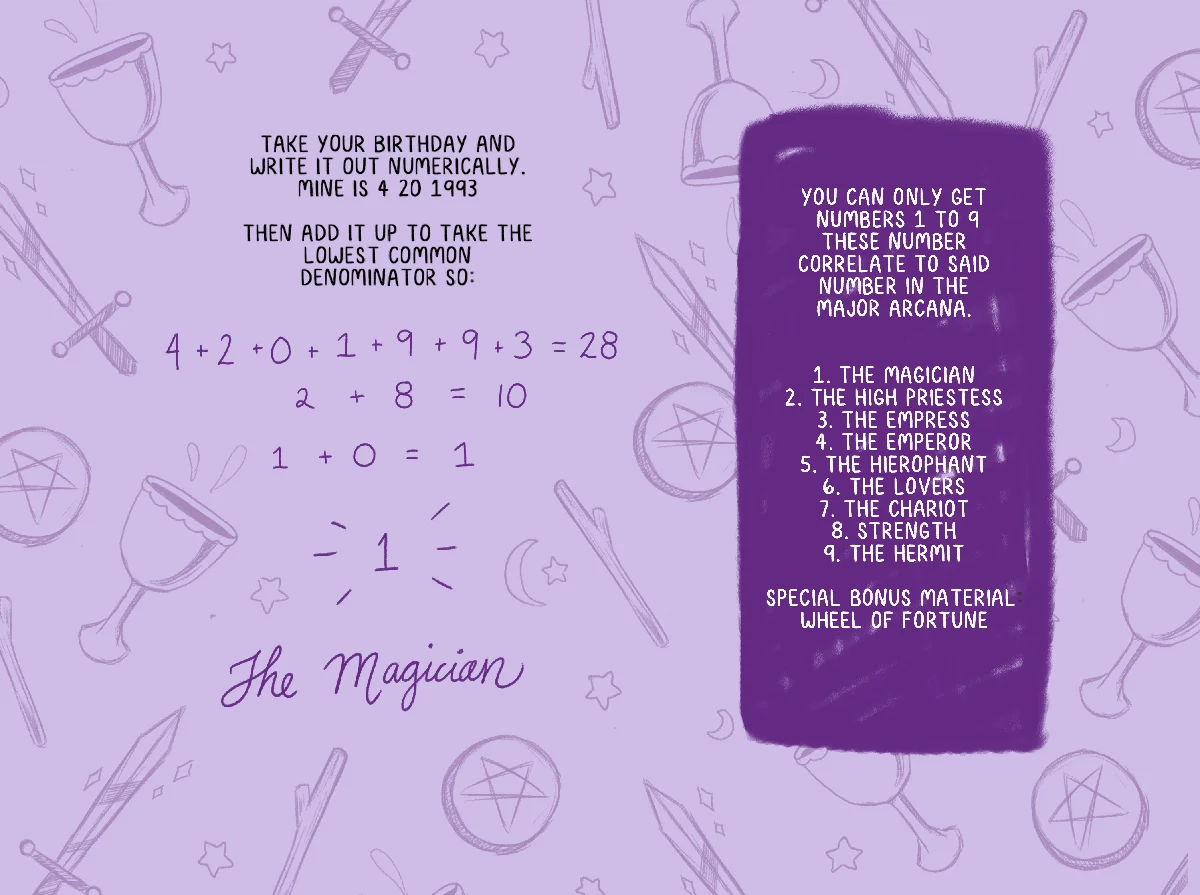 TAKE YOUR BIRTHDAY AND
WRITE IT OUT NUMERICALLY.
MINE IS 4 20 1993
THEN ADD IT UP TO TAKE THE
LOWEST COMMON
DENOMINATOR SO:
4 + 2 + 0 + 1 + 9 + 9 + 3 = 28
2 + 8 = 10
1 + 0 = 1
1
The Magician
YOU CAN ONLY GET
NUMBERS 1 TO 9
THESE NUMBER
CORRELATE TO SAID
NUMBER IN THE
MAJOR ARCANA.
1. THE MAGICIAN
2. THE HIGH PRIESTESS
3. THE EMPRESS
4. THE EMPEROR
5. THE HIEROPHANT
6. THE LOVERS
7. THE CHARIOT
8. STRENGTH
9. THE HERMIT
SPECIAL BONUS MATERIAL:
WHEEL OF FORTUNE